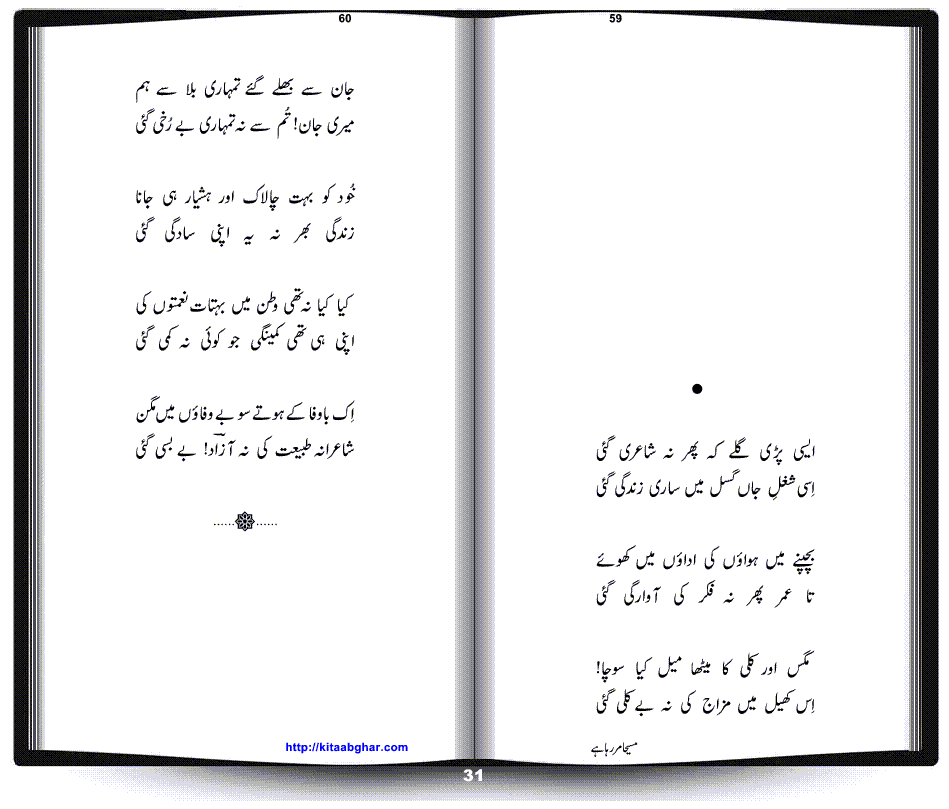 59
●
ایسی پڑی گلے کہ پھر نہ شاعری گئی
اِسی شغلِ جاں گسل میں ساری زندگی گئی
بچپنے میں ہواؤں کی اداؤں میں کھوئے
تا عمر پھر نہ فکر کی آوارگی گئی
مگس اور کلی کا میٹھا میل کیا سوچا!
اِس کھیل میں مزاج کی نہ بے کلی گئی
مسیحا مر رہا ہے
60
جان سے بھلے گئے تمہاری بلا سے ہم
میری جان! تُم سے نہ تمہاری بے رُخی گئی
خُود کو بہت چالاک اور ہشیار ہی جانا
زندگی بھر نہ یہ اپنی سادگی گئی
کیا کیا نہ تھی وطن میں بہتات نعمتوں کی
اپنی ہی تھی کمینگی جو کوئی نہ کمی گئی
اِک باوفا کے ہوتے سو بے وفاؤں میں مگن
شاعرانہ طبیعت کی نہ آزادؔ! بے بسی گئی
......۞......
http://kitaabghar.com
31